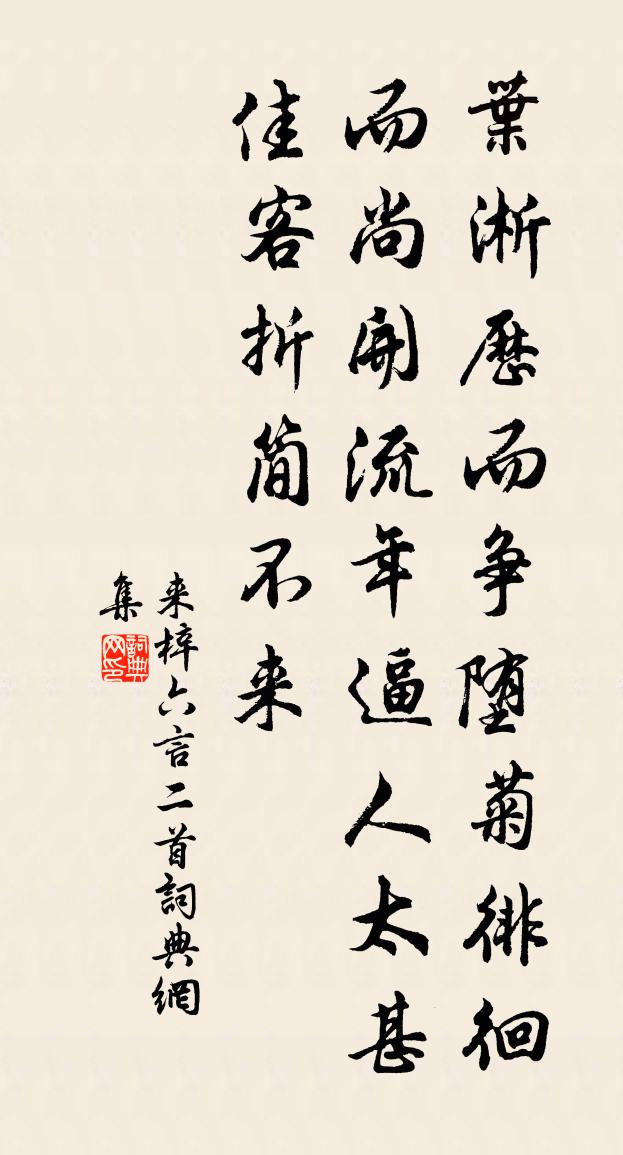 葉淅歷而争堕菊徘徊
而尚開流年逼人太甚
佳客折简不来
来梓六言二首詞典網
集
詞典网印